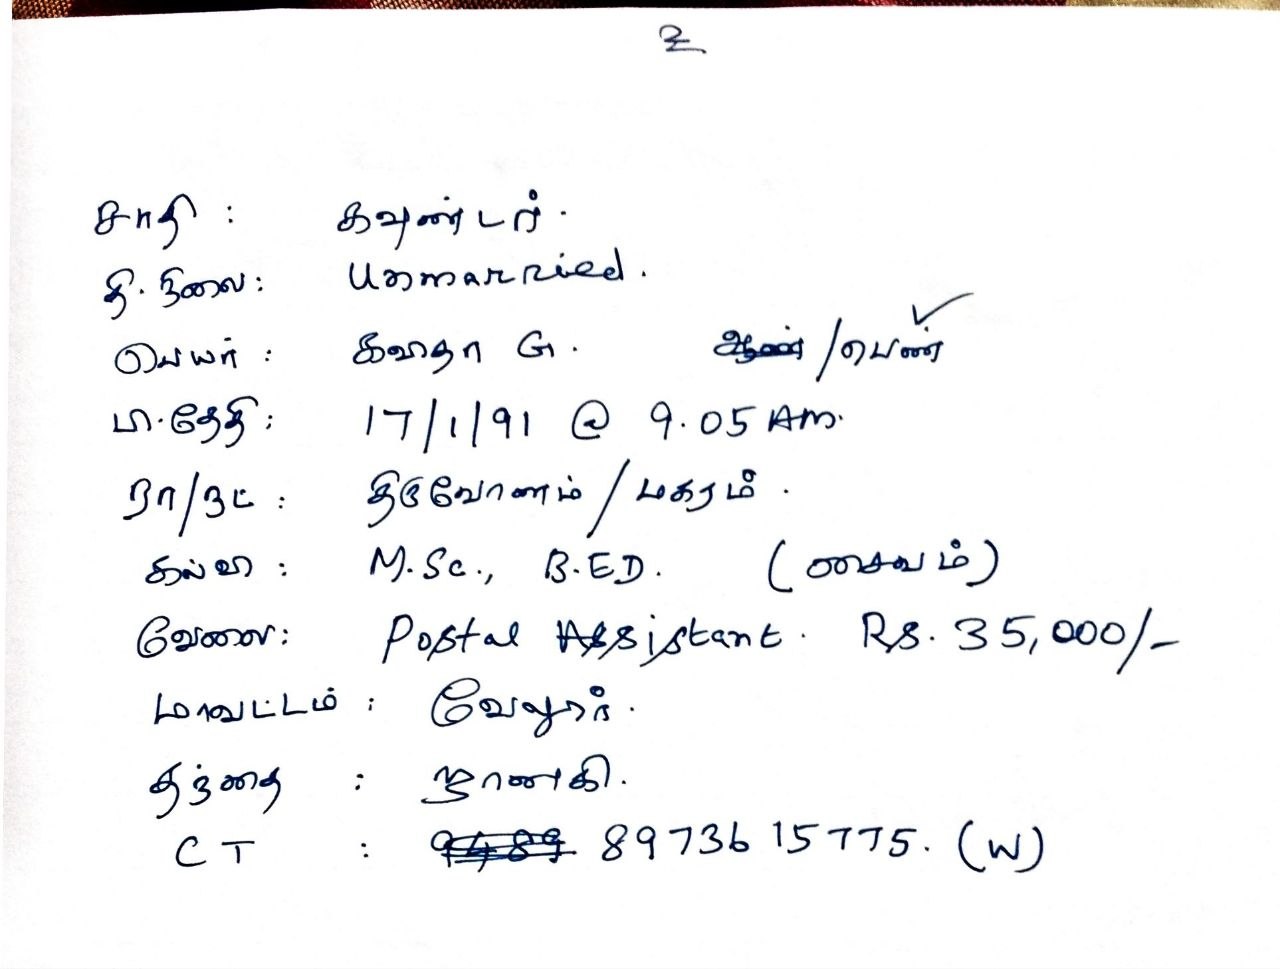 உ
சாதி : கவுண்டர்.
தி. நிலை : Unmarried.
பெயர் : கவிதா G. ஆண் / பெண் ✓
பி.தேதி : 17/1/91 @ 9.05 Am.
ரா/நட் : திருவோணம் / மகரம்.
கல்வி : M.Sc., B.ED. (சைவம்)
வேலை : Postal Assistant. Rs. 35,000/-
மாவட்டம் : வேலூர்.
தந்தை : ஜானகி.
CT : 9489 8973615775. (W)